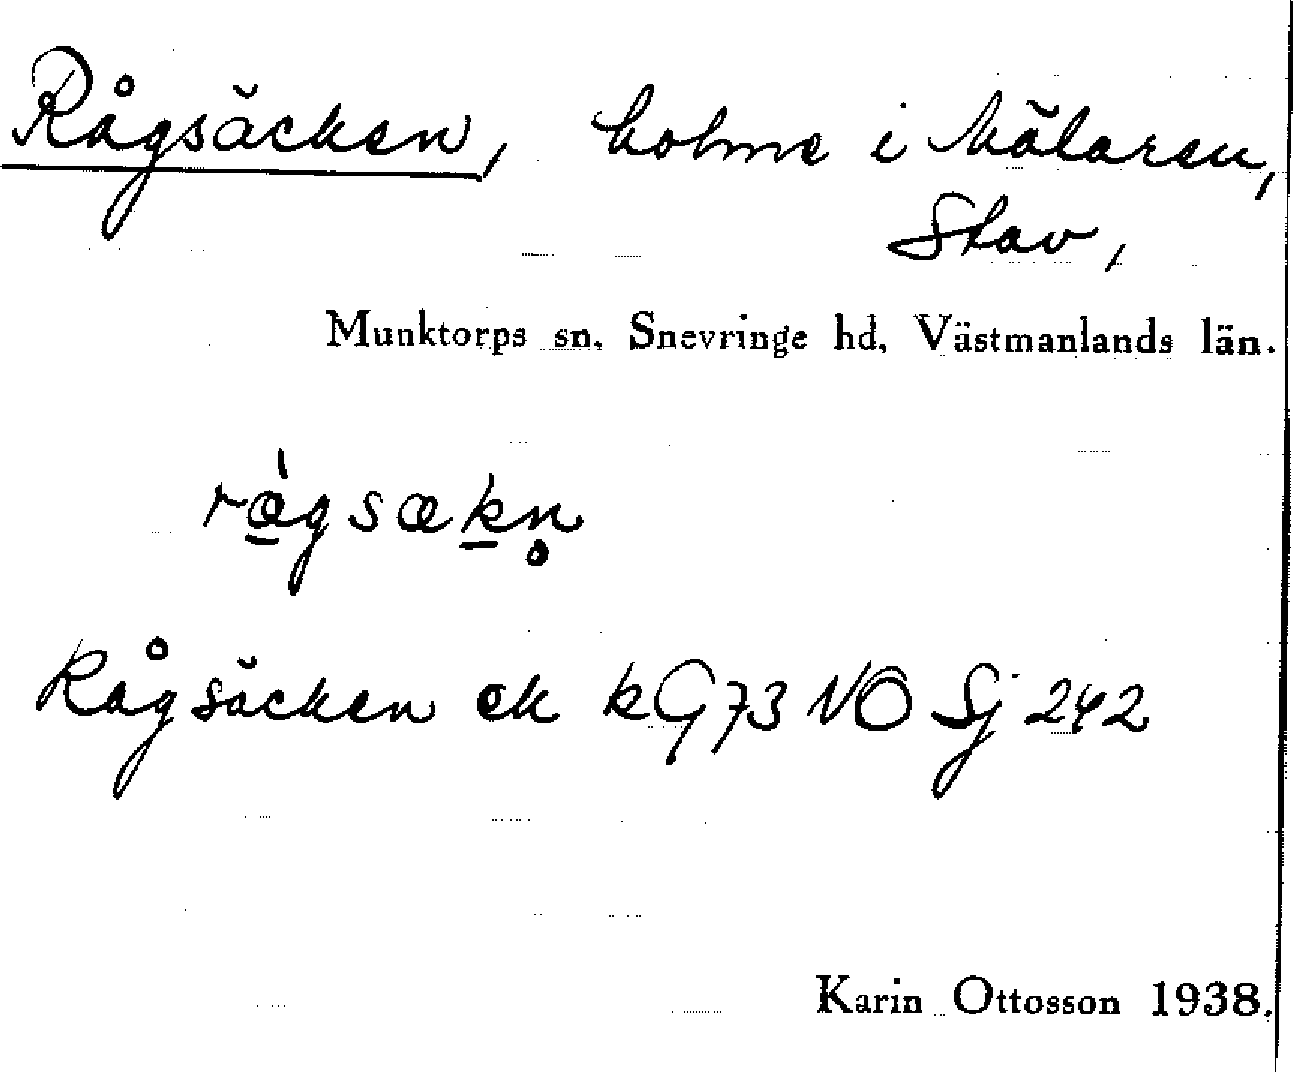 Rågsäcken, holme i Mälaren,
Stav,
Munktorps sn, Snevringe hd, Västmanlands län.
rǻgsækn̥
Rågsäcken ek kG73 NO Sj 242
Karin Ottosson 1938.